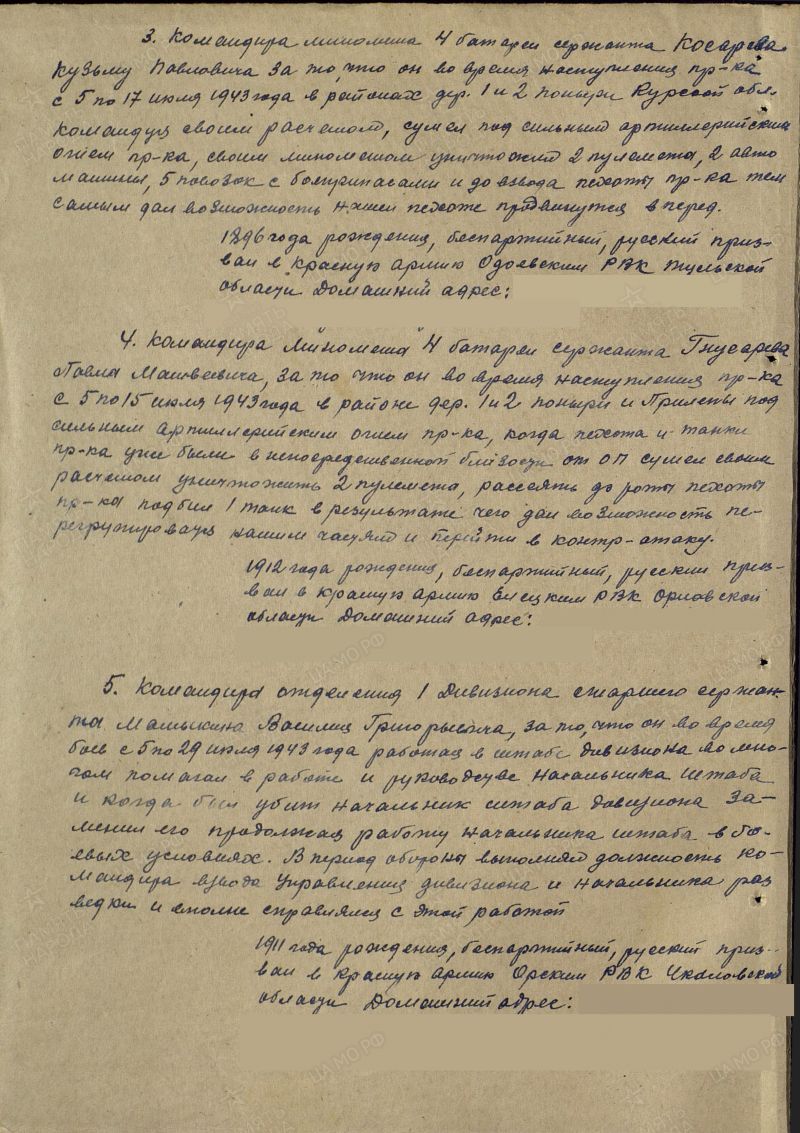 3. Командира миномета 4 батареи сержанта Косарева
Кузьму Павловича за то, что он во время наступления пр-ка
с 5 по 17 июля 1943 года в районах дер. 1 и 2 Поныри Курской обл.
командуя своим расчетом, сумел под сильным артиллерийским
огнем пр-ка, своим минометом уничтожил 2 пулемета, 2 авто
машины, 5 повозок с боеприпасами и до взвода пехоты пр-ка тем
самым дал возможность нашей пехоте продвинутся вперед.
1896 года рождения, беспартийный, русский приз-
ван в красную армию Одоевским РВК Тульской
области Домашний адрес:
4. Командира "Миномета" 4 батареи сержанта Гнусарева
Павла Матвеевича, за то что он во время наступления пр-ка
с 5 по 15 июля 1943 года в районе дер. 1 и 2 Поныри и Прилепы под
сильным артиллерийским огнем пр-ка, когда пехота и танки
пр-ка уже были в непосредственной близости от ОП сумел своим
расчетом уничтожить 2 пулемета, рассеять до роты пехоты
пр-ка подбил 1 танк в результате чего дал возможность пе-
регрупироваця нашим частям и перейти в контр-атаку.
1912 года рождения, беспартийный, русский приз-
ван в красную армию Елецким РВК Орловской
области Домашний адрес:
5. Командира отделения 1 Дивизиона старшего сержан-
та Малыкина Василия Григорьевича, за то, что он во время
боев с 5 по 29 июля 1943 года работая в штабе дивизиона во мно-
гом помагал в работе и руководстве начальника штаба
и когда был убит начальник штаба дивизиона за-
менил его продолжая работу начальника штаба в бо-
евых условиях. В период обороны выполнял должность ко-
мандира взвода Управления дивизиона и начальника раз
ведки и вполне справлялся с этой работой
1911 года рождения, беспартийный, русский приз-
ван в красную армию Орским РВК Чкаловской
области Домашний адрес:
ЦАМО РФ